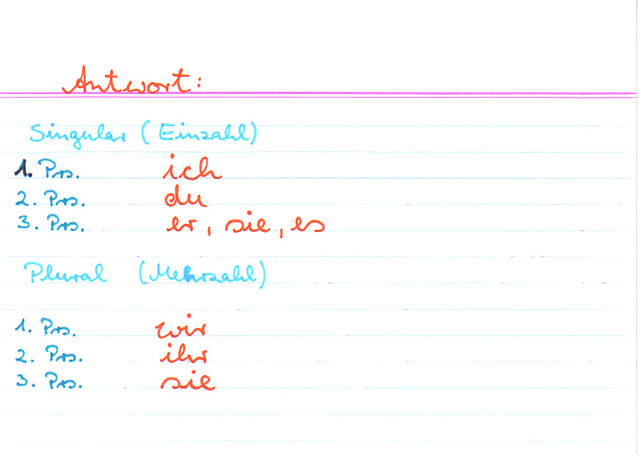 Antwort:
Singular (Einzahl)
1. Prs. ich
2. Prs. du
3. Prs. er, sie, es
Plural (Mehrzahl)
1. Prs. wir
2. Prs. ihr
3. Prs. sie